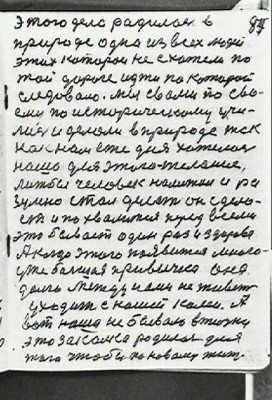 Этого дела радилась в 87
природе одна из всех людей
этих которои не схотела по
той дороге идти по которой
следовало. Мы с вами по сво-
ему по историческому учи-
лись и делали в природе так
как нам эте дня хотелось
наша для этого желание,
лижби человек наметил и ра
зумно стал делать он сдела-
ет и похвалится перед всеми
это бывает один раз и здорово
А когда этого появится много-
уже бальшая привычка она
долго между нами не живет
уходит с нашей колеи. А
вот наша не бывало в жизни
это закалка родилась для
того чтобы по новому жить.